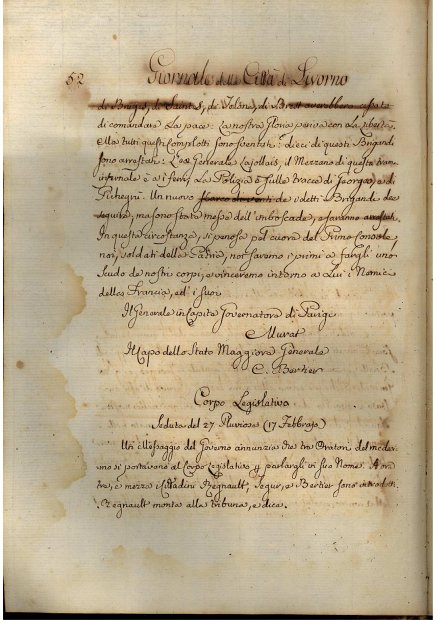 52 Giornale della Città di Livorno
di Bruges, di Saintes, di Tolone, di Brest avrebbero cessato
di comandare la pace: la nostra gloria periva con la libertà.
Ma tutti questi Complotti sono sventati: dieci di questi Brigandi
sono arrestati: L'ex Generale Lajollais, il Mezzano di questa trama
infernale è a i ferri, La Polizia è sulle tracce di Georges, e di
Pichegrù. Un nuovo sbarco di venti de' detti Brigandi dee
seguire, ma sono state messe dell'imboscade, e saranno arrestati.
In questa circostanza, sì penosa pel cuore del Primo Console
noi, soldati della Patria, noi saremo i primi a fargli uno
scudo de nostri corpi, e vinceremo intorno a Lui i Nemici
della Francia, ed i suoi
Il Generale in Capite Governatore di Parigi
Murat
Il Capo dello Stato Maggiore Generale
C. Bertier
Corpo Legislativo
Seduta del 27 Piovoso (17 Febbrajo)
Un Messaggio del Governo annunzia che tre Oratori del medesi-
mo si porteranno al Corpo Legislativo p parlargli in suo Nome. A ore
tre, e mezza i Cittadini Regnault, Segur, e Bertier sono introdotti.
Regnault monta alla tribuna, e dice.